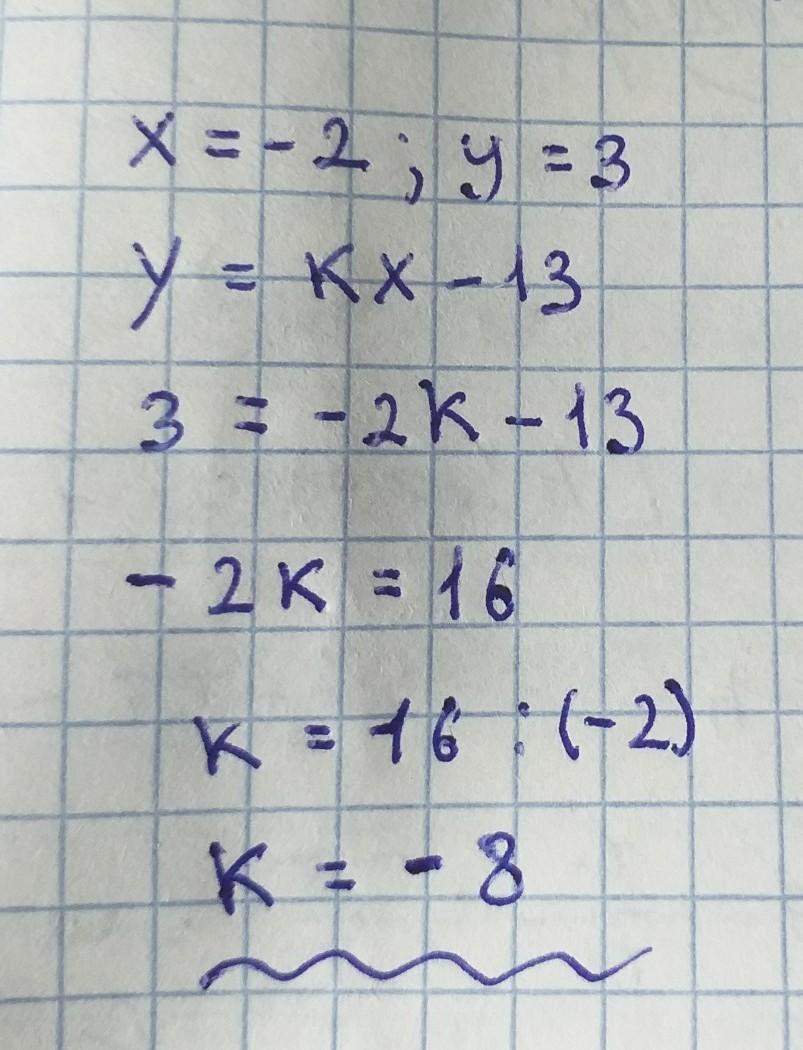 x = -2; y = 3
y = kx - 13
3 = -2k - 13
-2k = 16
k = 16 : (-2)
k = -8